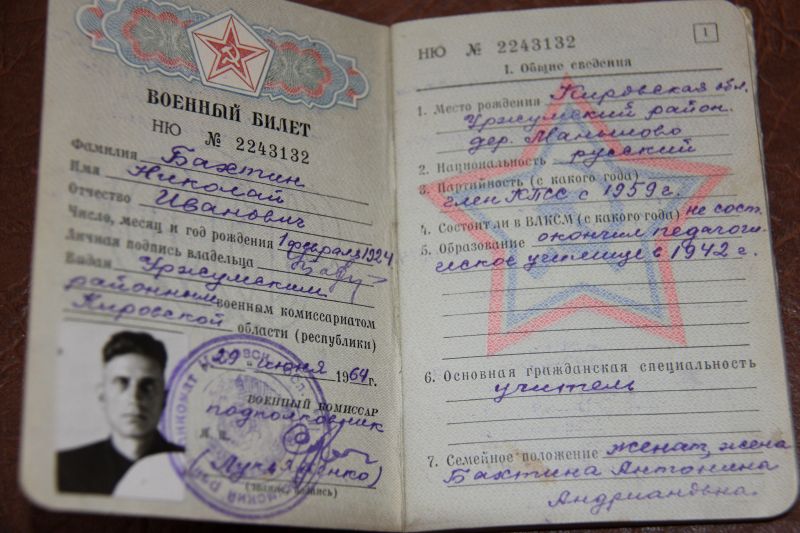 ВОЕННЫЙ БИЛЕТ
НЮ № 2243132
Фамилия Бахтин
Имя Николай
Отчество Иванович
Число, месяц и год рождения 1 февраля 1924
Личная подпись владельца
Выдан Уржумским
районным военным комиссариатом
Кировской области (республики)
29 июня 1964 г.
ВОЕННЫЙ КОМИССАР
подполковник
М. п.
(звание, подпись)
НЮ № 2243132
1
1. Общие сведения
1. Место рождения Кировская обл.
Уржумский район.
дер. Манылово
2. Национальность русский
3. Партийность (с какого года)
член КПСС с 1959 г.
4. Состоит ли в ВЛКСМ (с какого года) не сост.
5. Образование окончил педагоги-
ческое училище в 1942 г.
6. Основная гражданская специальность
учитель
7. Семейное положение женат, жена
Бахтина Антонина
Андриановна